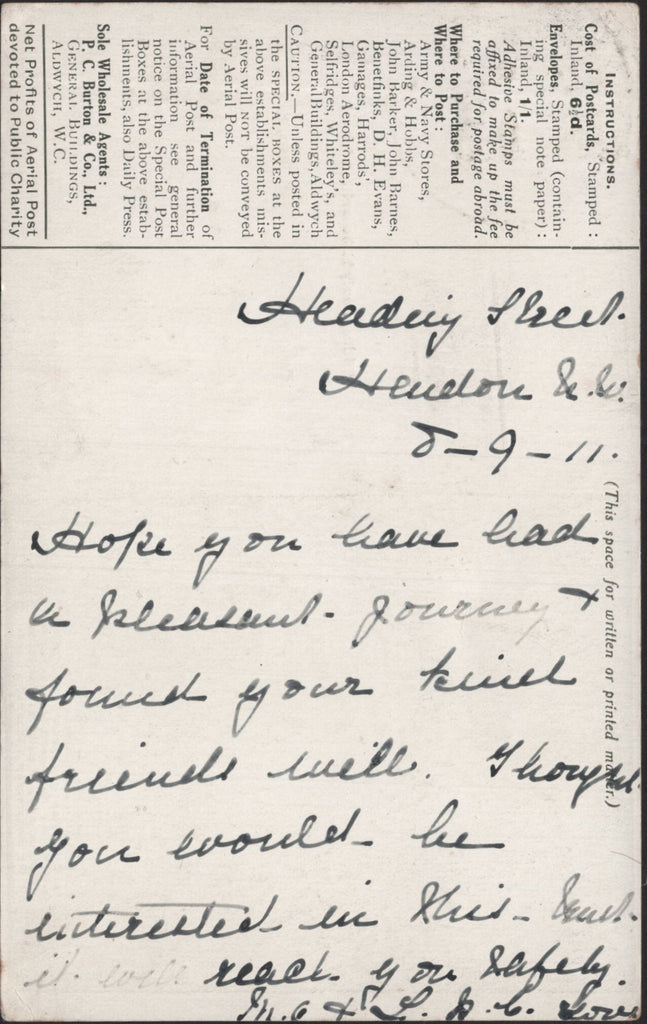 INSTRUCTIONS.
Cost of Postcards, Stamped :
Inland, 6½d.
Envelopes, Stamped (contain-
ing special note paper) :
Inland, 1/1.
Adhesive Stamps must be
affixed to make up the fee
required for postage abroad.
Where to Purchase and
Where to Post :
Army & Navy Stores,
Arding & Hobbs,
John Barker, John Barnes,
Benetfinks, D. H. Evans,
Gamages, Harrods',
London Aerodrome,
Selfridges, Whiteley's, and
General Buildings, Aldwych
CAUTION.—Unless posted in
the SPECIAL BOXES at the
above establishments mis-
sives will NOT be conveyed
by Aerial Post.
For Date of Termination of
Aerial Post and further
information see general
notice on the Special Post
Boxes at the above estab-
lishments, also Daily Press.
Sole Wholesale Agents :
P. C. Burton & Co., Ltd.,
GENERAL BUILDINGS,
ALDWYCH, W.C.
Net Profits of Aerial Post
devoted to Public Charity
(This space for written or printed matter.)
Heading Street.
Hendon N.W.
8-9-11.
Hope you have had
a pleasant journey &
found your kind
friends well. Thought
you would be
interested in this. Trust
it will reach you safely.
M. G & L. B. C. Love